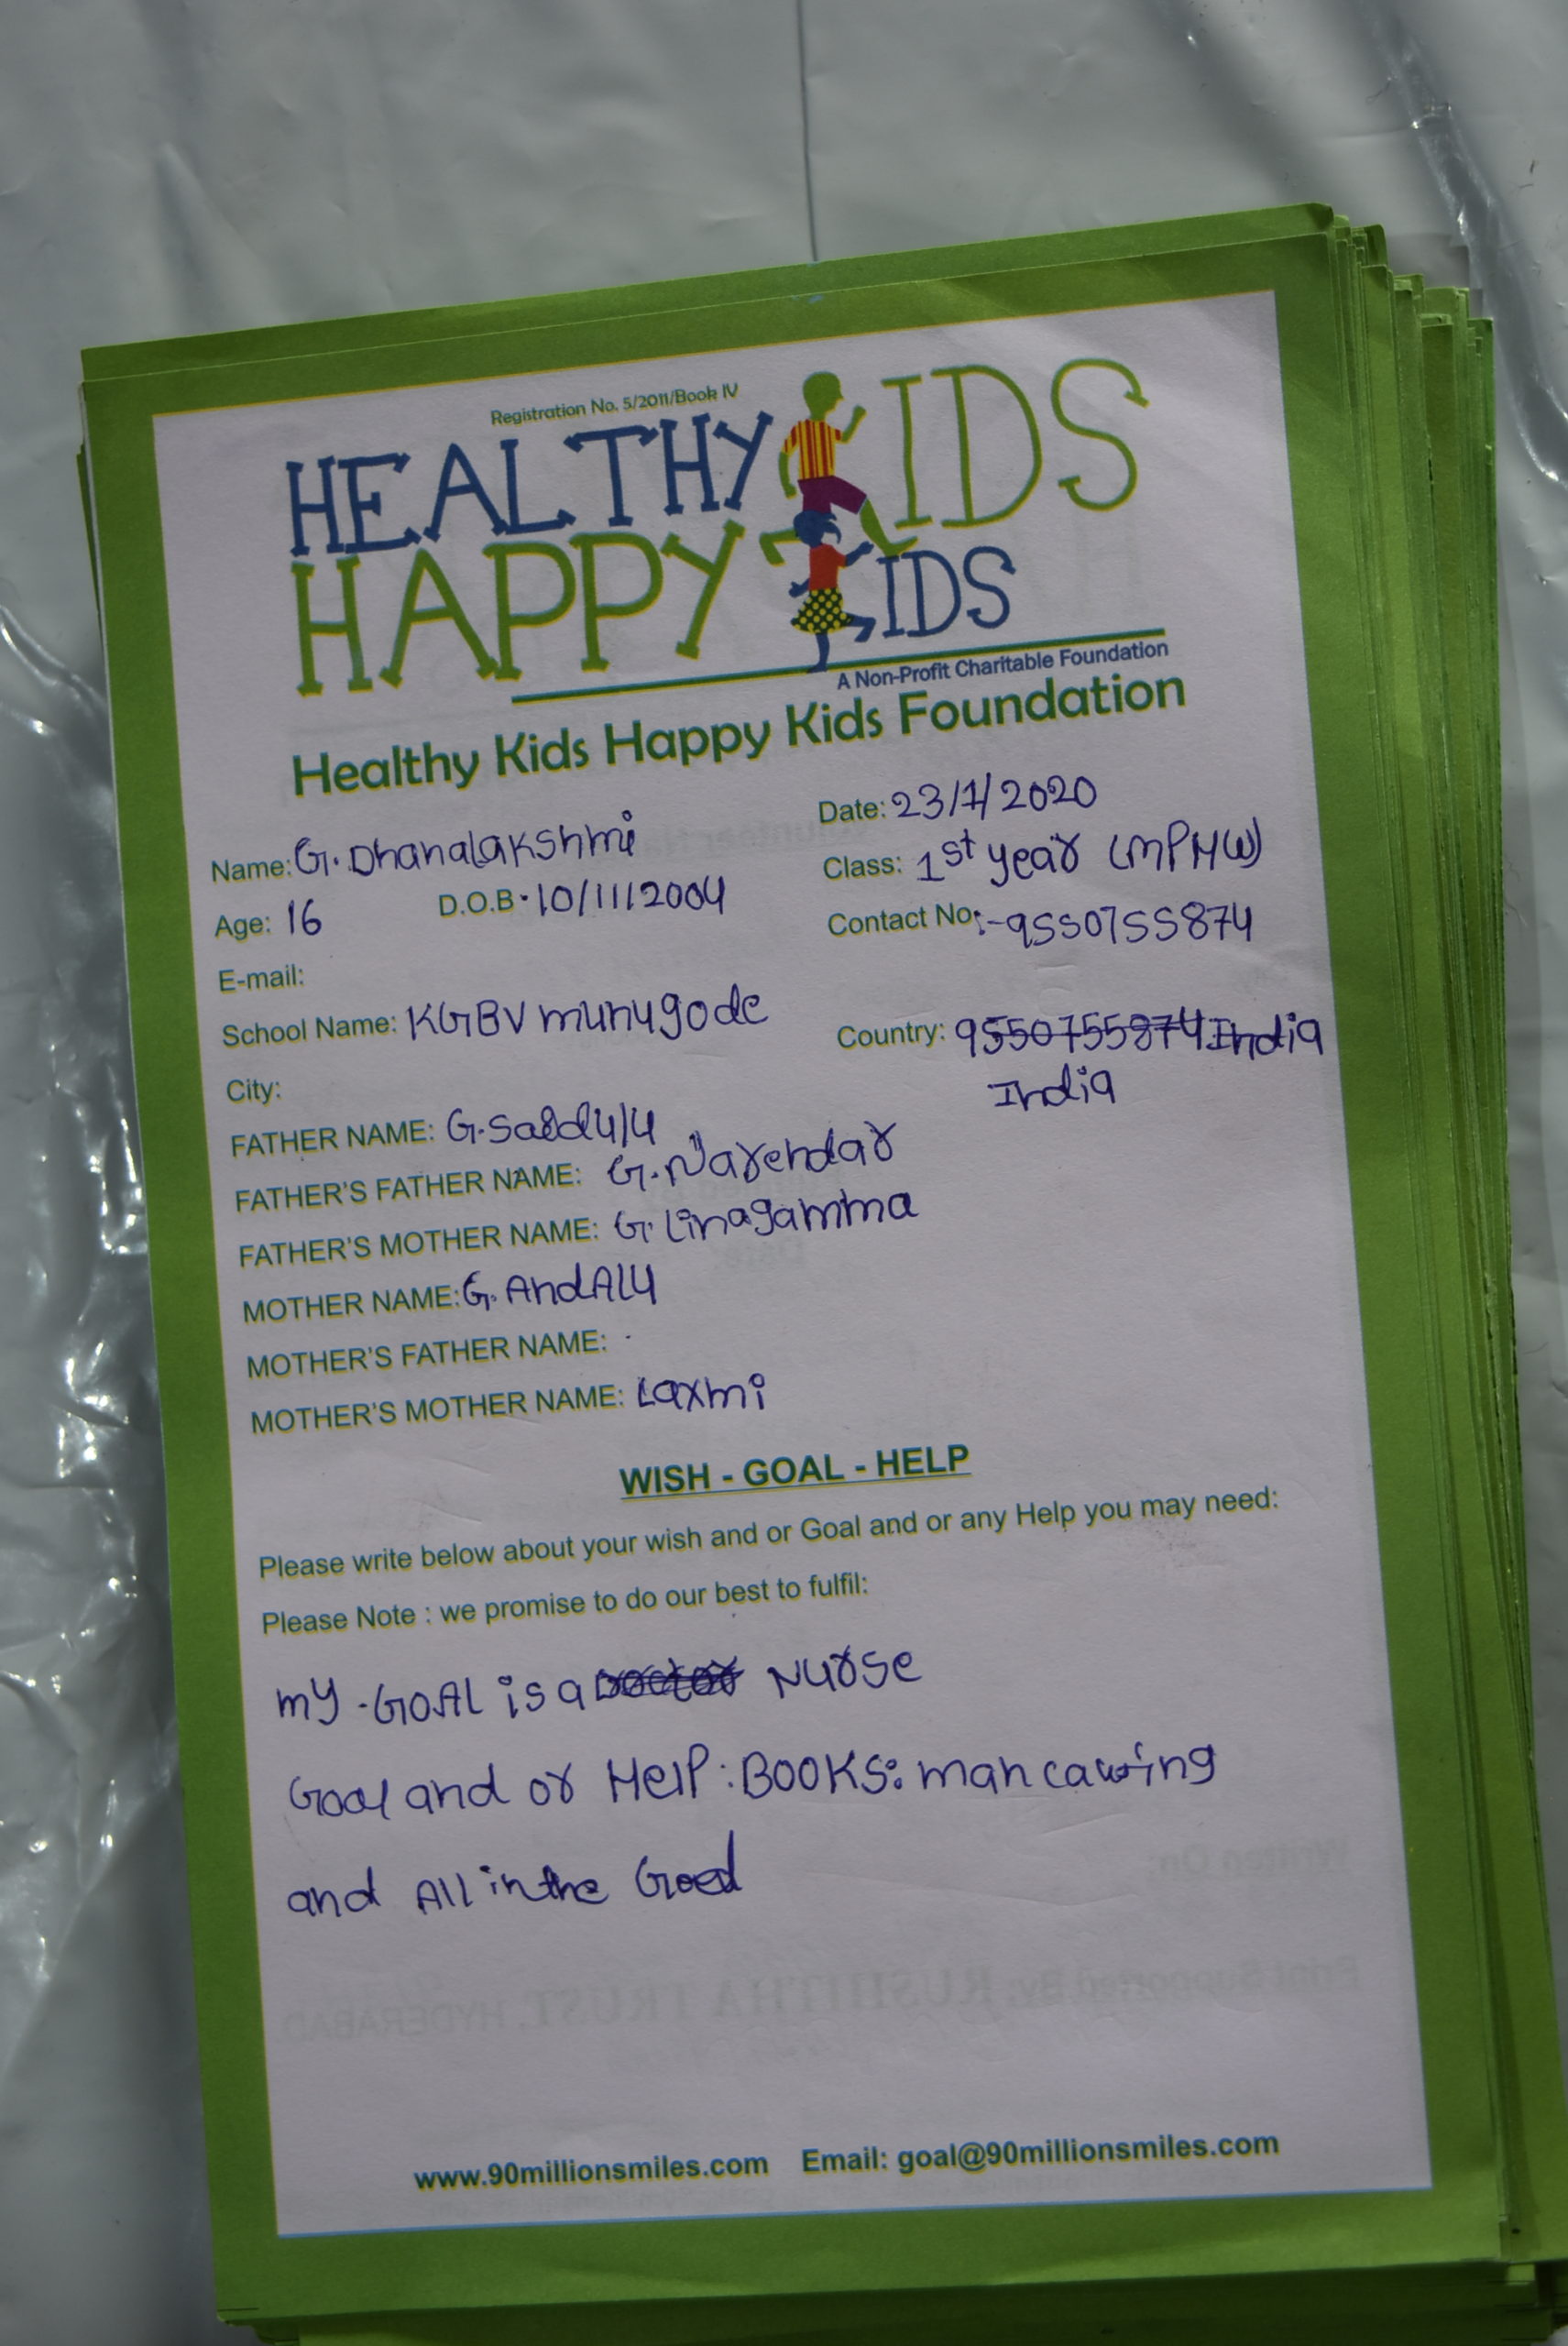 Registration No. 5/2011/Book IV
HEALTHY KIDS
HAPPY KIDS
A Non-Profit Charitable Foundation
Healthy Kids Happy Kids Foundation
Date: 23/1/2020
Name: G. Dhanalakshmi
Class: 1st year (MPHW)
Age: 16 D.O.B. 10/11/2004
Contact No:- 9550755874
E-mail:
School Name: KGBV munugode
Country: 9550755874 India
India
City:
FATHER NAME: G. Saidulu
FATHER'S FATHER NAME: G. Narendar
FATHER'S MOTHER NAME: G. Linagamma
MOTHER NAME: G. AndAlu
MOTHER'S FATHER NAME:
MOTHER'S MOTHER NAME: Laxmi
WISH - GOAL - HELP
Please write below about your wish and or Goal and or any Help you may need:
Please Note : we promise to do our best to fulfil:
my GOAL is a Doctor Nurse
Goal and or HelP: BOOKS: man
and All in the Good
www.90millionsmiles.com Email: goal@90millionsmiles.com